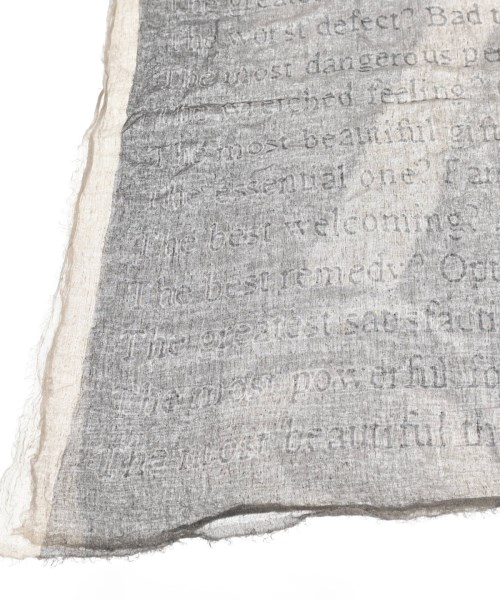 The greatest
The worst defect? Bad
The most dangerous pe
The wretched feeling?
The most beautiful gift
The essential one?
The best welcoming?
The best remedy? Op
The greatest satisfact
The most powerful fo
The most beautiful th